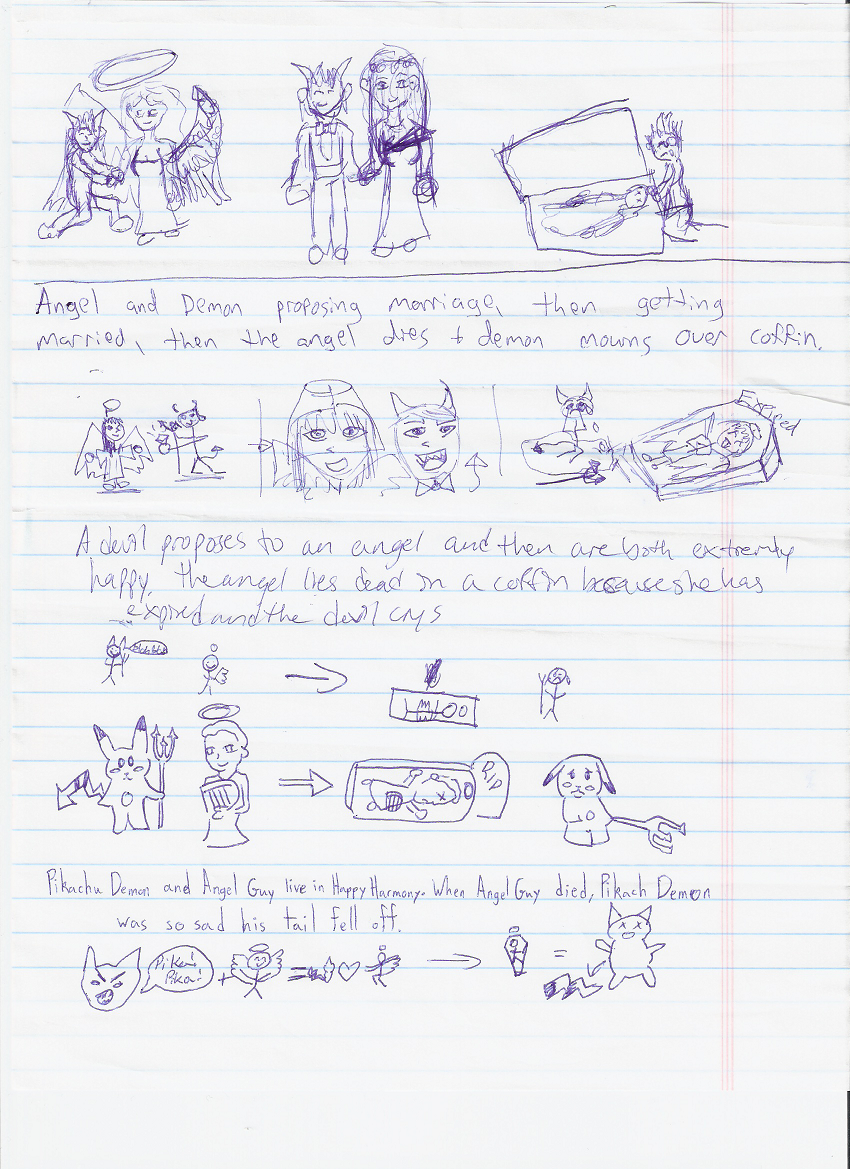 Angel and Demon proposing marriage, then getting
married, then the angel dies & demon mourns over coffin.
Expired
A devil proposes to an angel and then are both extremly
happy. the angel lies dead in a coffin because she has
expired and the devil crys
RIP
Pikachu Demon and Angel Guy live in Happy Harmony. When Angel Guy died, Pikach Demon
was so sad his tail fell off.
Pika!
Pika!
+
=
=